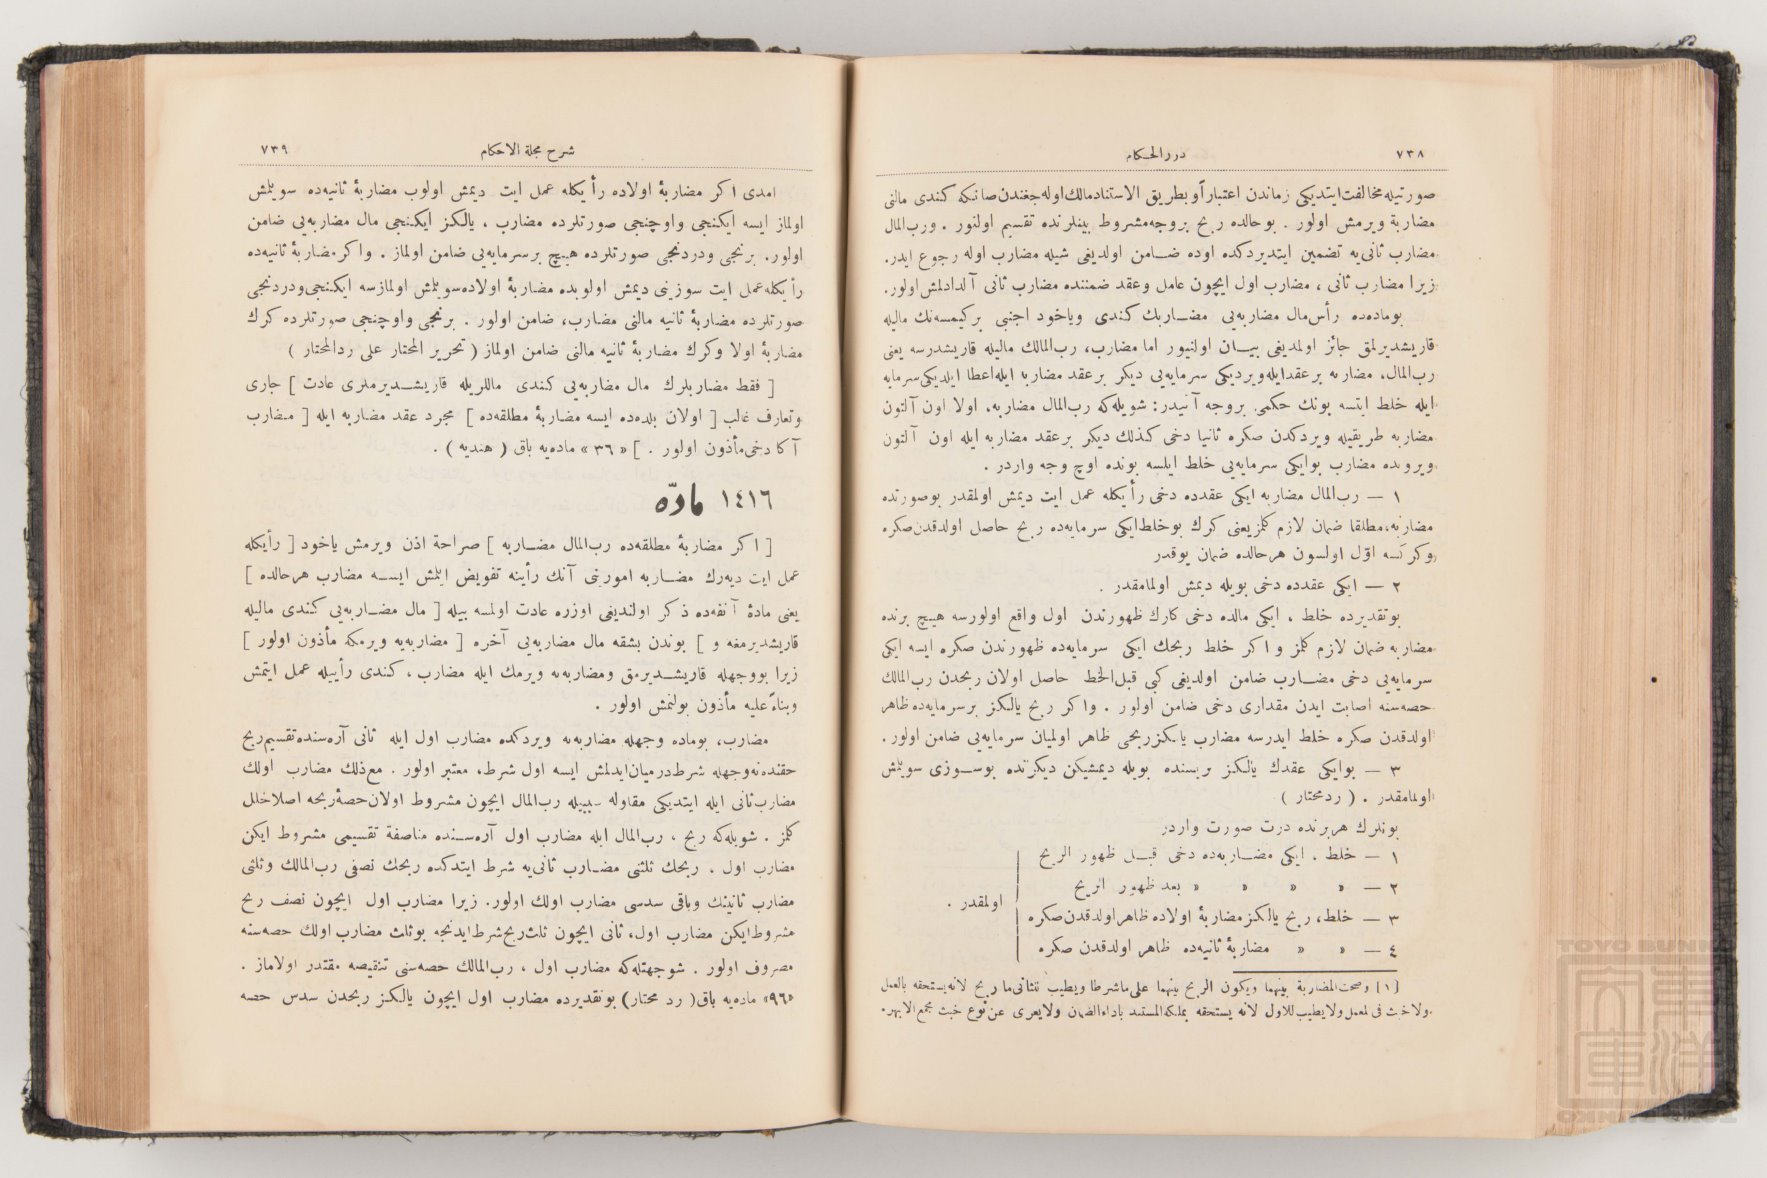 ٧٣٨
دررالحكام
صورتيله مخالفت ايتديكى زماندن اعتباراً و بطريق الاستناد مالك اوله جغندن صانكه كندى مالنى
مضاربة ويرمش اولور . بوحالده ربح بروجه مشروط بينلرنده تقسيم اولنور . ورب المال
مضارب ثانى يه تضمين ايتديردكده اوده ضامن اولديغى شيله مضارب اوله رجوع ايدر.
زيرا مضارب ثانى ، مضارب اول ايچون عامل وعقد ضمننده مضارب ثانى آلدادلمش اولور.
بوماده ده رأس مال مضاربه يى مضاربك كندى وياخود اجنبى بركيمسه نك ماليله
قاريشديرلمق جائز اولمديغى بيان اولنيور اما مضارب، رب المالك ماليله قاريشدرسه يعنى
رب المال، مضاربه بر عقد ايله ويرديكى سرمايه يى ديكر بر عقد مضاربه ايله اعطا ايلديكى سرمايه
ايله خلط ايتسه بونك حكمى بروجه آتيدر: شويله كه رب المال مضاربه، اولا اون آلتون
مضاربه طريقيله ويردكدن صكره ثانيا دخى كذلك ديكر بر عقد مضاربه ايله اون آلتون
ويروبده مضارب بوايكى سرمايه يى خلط ايلسه بونده اوچ وجه واردر .
١ — رب المال مضاربه ايكى عقدده دخى رأيكله عمل ايت ديمش اولمقدر بوصورتده
مضاربه، مطلقا ضمان لازم كلمز يعنى كرك بوخلط ايكى سرمايه ده ربح حاصل اولدقدن صكره
وكركسه اوّل اولسون هر حالده ضمان يوقدر
٢ — ايكى عقدده دخى بويله ديمش اولمامقدر .
بوتقديرده خلط ، ايكى مالده دخى كارك ظهورندن اول واقع اولورسه هيچ برنده
مضاربه ضمان لازم كلمز و اكر خلط ربحك ايكى سرمايه ده ظهورندن صكره ايسه ايكى
سرمايه يى دخى مضارب ضامن اولديغى كبى قبل الخلط حاصل اولان ربحدن رب المالك
حصه سنه اصابت ايدن مقدارى دخى ضامن اولور . واكر ربح يالكز بر سرمايه ده ظاهر
اولدقدن صكره خلط ايدرسه مضارب يالكز ربحى ظاهر اولميان سرمايه يى ضامن اولور .
٣ — بوايكى عقدك يالكز بريسنده بويله ديمشيكن ديكرنده بوسوزى سويلمش
اولمامقدر . ( رد محتار )
بونلرك هربرنده درت صورت واردر
١ — خلط ، ايكى مضاربه ده دخى قبل ظهور الربح
٢ — « « « « بعد ظهور الربح
٣ — خلط، ربح يالكز مضاربهٔ اولاده ظاهر اولدقدن صكره
٤ — « « مضاربهٔ ثانيه ده ظاهر اولدقدن صكره
اولمقدر .
[١] وصحت المضاربة بينهما ويكون الربح بينهما على ماشرطا ويطيب للثانى ما ربح لانه يستحقه بالعمل
ولاخبث فى لعمل ولا يطيب للاول لانه يستحقه بملكه المستند باداء الضمان ولا يعرى عن نوع خبث مجمع الانهر.
شرح مجلة الاحكام
٧٣٩
امدى اكر مضاربهٔ اولاده رأيكله عمل ايت ديمش اولوب مضاربهٔ ثانيه ده سويلمش
اولماز ايسه ايكنجى واوچنجى صورتلرده مضارب ، يالكز ايكنجى مال مضاربه يى ضامن
اولور. برنجى ودردنجى صورتلرده هيچ برسرمايه يى ضامن اولماز . واكر مضاربهٔ ثانيه ده
رأيكله عمل ايت سوزينى ديمش اولوبده مضاربهٔ اولاده سويلمش اولمازسه ايكنجى ودردنجى
صورتلرده مضاربهٔ ثانيه مالنى مضارب، ضامن اولور . برنجى واوچنجى صورتلرده كرك
مضاربهٔ اولا وكرك مضاربهٔ ثانيه مالنى ضامن اولماز ( تحرير المختار على ردالمحتار )
[ فقط مضاربلرك مال مضاربه يى كندى ماللريله قاريشديرملرى عادت ] جارى
وتعارف غالب [ اولان بلده ده ايسه مضاربهٔ مطلقه ده ] مجرد عقد مضاربه ايله [ مضارب
آكا دخى مأذون اولور . ] « ٣٦ » ماده يه باق ( هنديه ) .
مادّه ١٤١٦
[ اكر مضاربهٔ مطلقه ده رب المال مضاربه ] صراحة اذن ويرمش ياخود [ رأيكله
عمل ايت ديه رك مضاربه امورينى آنك رأينه تفويض ايلمش ايسه مضارب هر حالده ]
يعنى مادهٔ آنفه ده ذكر اولنديغى اوزره عادت اولمسه بيله [ مال مضاربه يى كندى ماليله
قاريشديرمغه و ] بوندن بشقه مال مضاربه يى آخره [ مضاربه يه ويرمكه مأذون اولور ]
زيرا بووجهله قاريشديرمق ومضاربه يه ويرمك ايله مضارب ، كندى رأييله عمل ايتمش
وبناءً عليه مأذون بولنمش اولور .
مضارب، بوماده وجهله مضاربه يه ويردكده مضارب اول ايله ثانى آره سنده تقسيم ربح
حقنده نه وجهله شرط درميان ايدلمش ايسه اول شرط، معتبر اولور . مع ذلك مضارب اولك
مضارب ثانى ايله ايتديكى مقاوله سببيله رب المال ايچون مشروط اولان حصهٔ ربحه اصلا خلل
كلمز . شويله كه ربح ، رب المال ايله مضارب اول آره سنده مناصفة تقسيمى مشروط ايكن
مضارب اول . ربحك ثلثنى مضارب ثانى يه شرط ايتدكده ربحك نصفى رب المالك وثلثى
مضارب ثانينك وباقى سدسى مضارب اولك اولور. زيرا مضارب اول ايچون نصف ربح
مشروط ايكن مضارب اول، ثانى ايچون ثلث ربح شرط ايدنجه بوثلث مضارب اولك حصه سنه
مصروف اولور . شوجهتله كه مضارب اول ، رب المالك حصه سنى تنقيصه مقتدر اولاماز .
«٩٦» ماده يه باق ( رد محتار ) بوتقديرده مضارب اول ايچون يالكز ربحدن سدس حصه
TOYO BUNKO
東洋
文庫
TOYO BUNKO